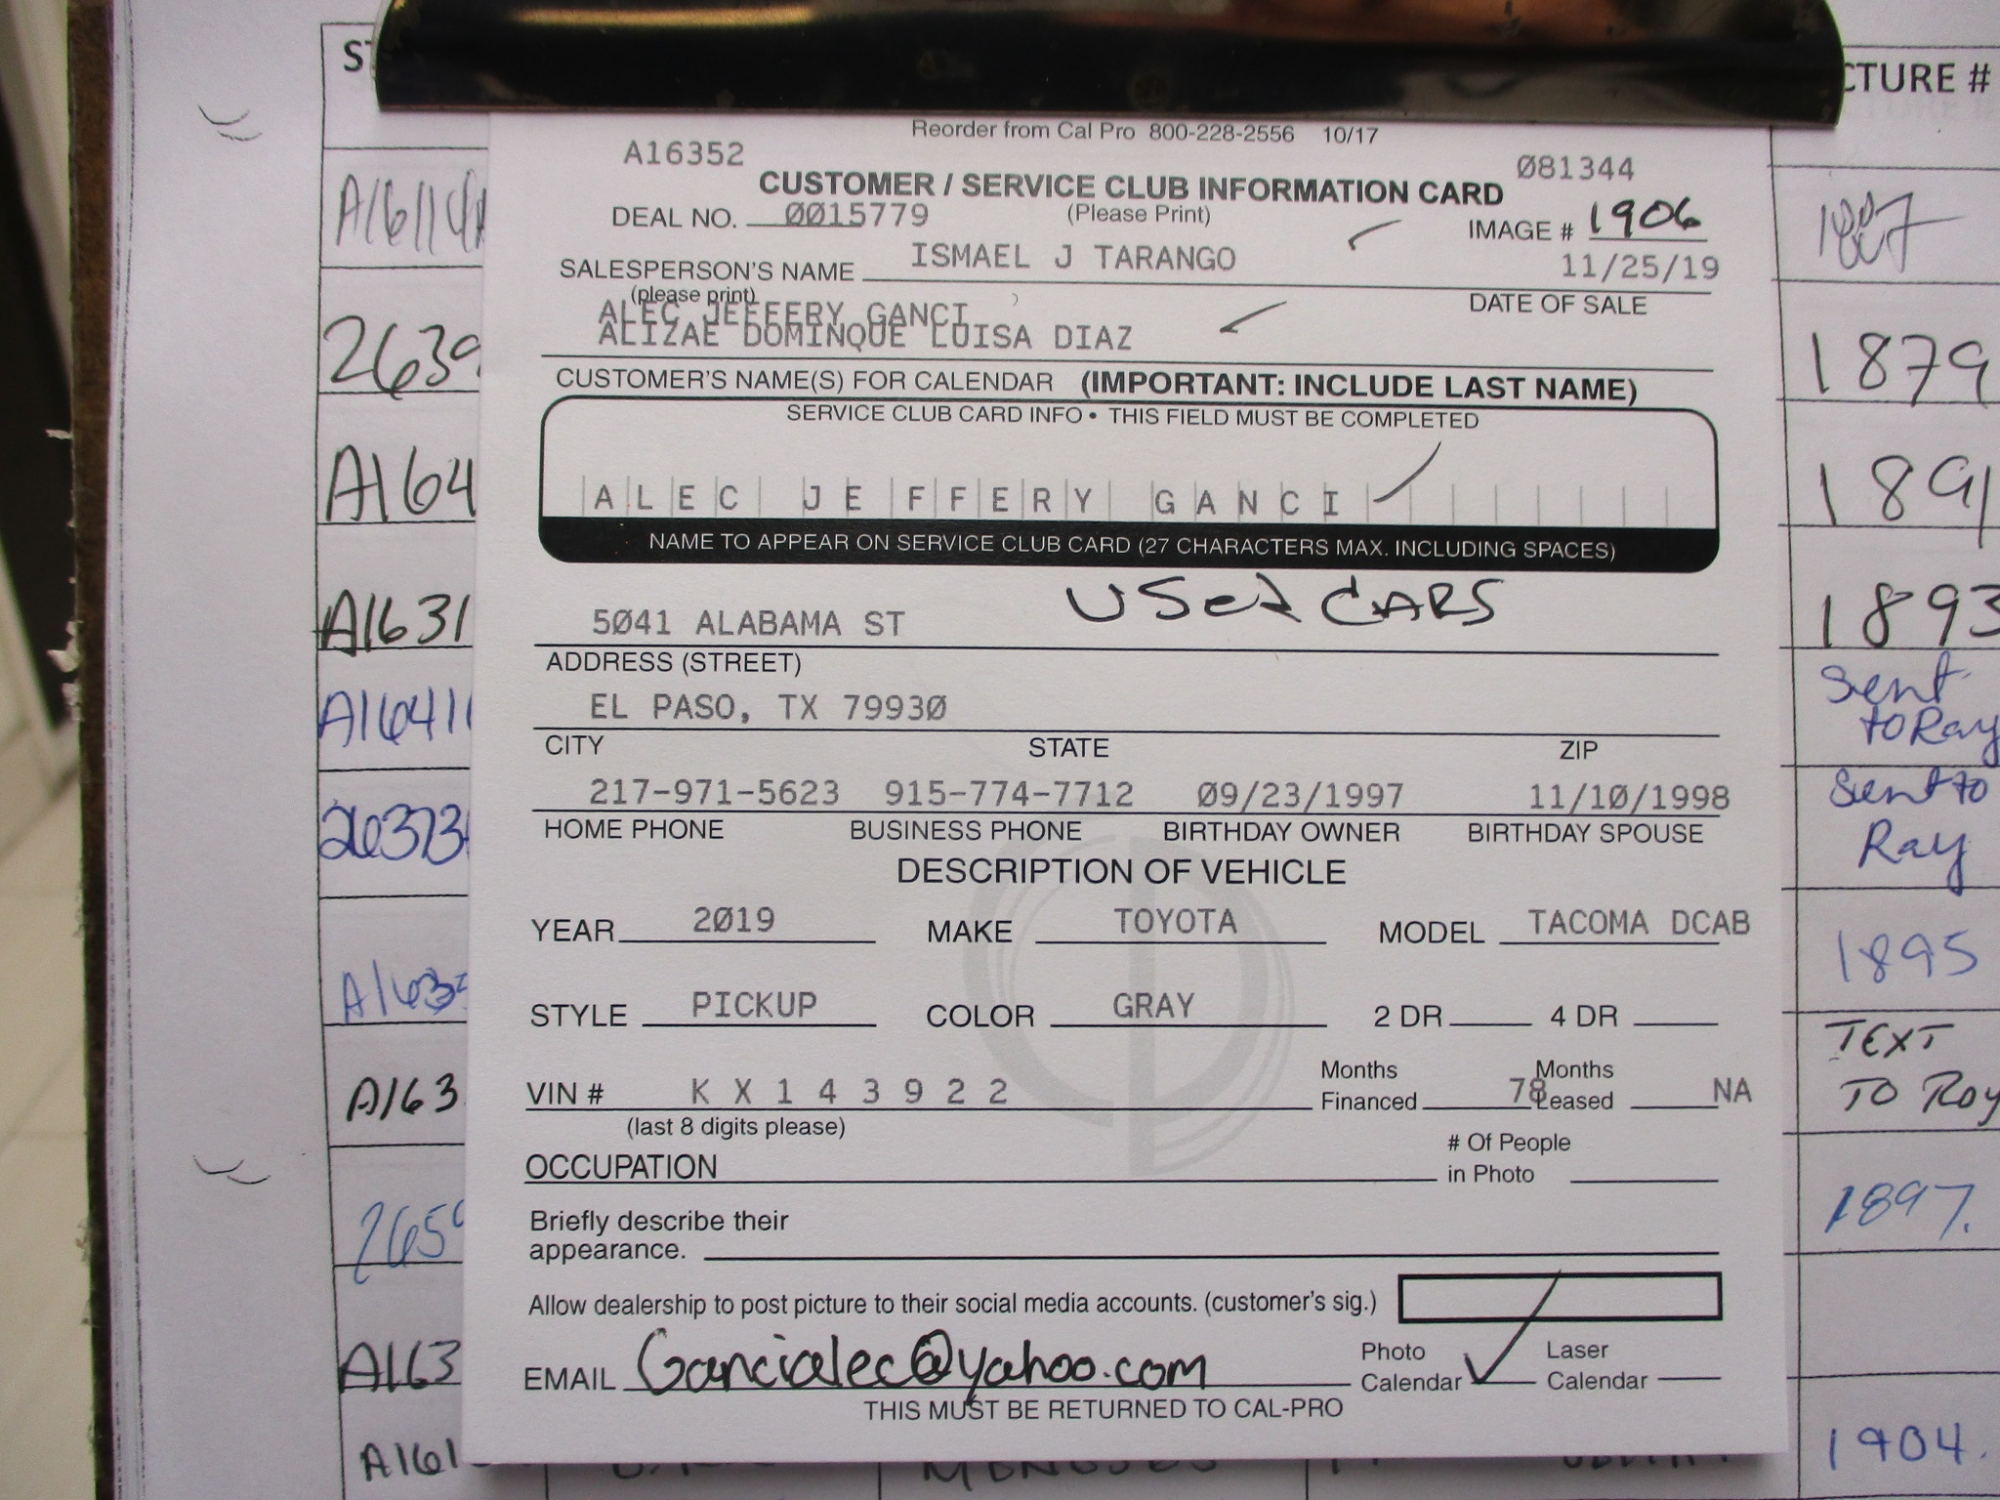 Reorder from Cal Pro 800-228-2556 10/17
A16352
Ø81344
CUSTOMER / SERVICE CLUB INFORMATION CARD
DEAL NO. ØØ15779 (Please Print) IMAGE # 1906
SALESPERSON'S NAME ISMAEL J TARANGO 11/25/19
(please print) DATE OF SALE
ALEC JEFFERY GANCI
ALIZAE DOMINQUE LUISA DIAZ
CUSTOMER'S NAME(S) FOR CALENDAR (IMPORTANT: INCLUDE LAST NAME)
SERVICE CLUB CARD INFO • THIS FIELD MUST BE COMPLETED
ALEC JEFFERY GANCI
NAME TO APPEAR ON SERVICE CLUB CARD (27 CHARACTERS MAX. INCLUDING SPACES)
USed CARS
5Ø41 ALABAMA ST
ADDRESS (STREET)
EL PASO, TX 7993Ø
CITY STATE ZIP
217-971-5623 915-774-7712 Ø9/23/1997 11/1Ø/1998
HOME PHONE BUSINESS PHONE BIRTHDAY OWNER BIRTHDAY SPOUSE
DESCRIPTION OF VEHICLE
YEAR 2Ø19 MAKE TOYOTA MODEL TACOMA DCAB
STYLE PICKUP COLOR GRAY 2 DR 4 DR
VIN # K X 1 4 3 9 2 2 Months Financed 78 Months Leased NA
(last 8 digits please)
OCCUPATION # Of People in Photo
Briefly describe their
appearance.
Allow dealership to post picture to their social media accounts. (customer's sig.)
EMAIL Gancialec@yahoo.com Photo Calendar Laser Calendar
THIS MUST BE RETURNED TO CAL-PRO
CTURE #
A16114A
1887
2639
1879
A164
1891
A1631
1893
A16411
Sent
to Ray
26373
Sent to
Ray
A1635
1895
A163
TEXT
TO Roy
2659
1897.
A163
A161
1904.